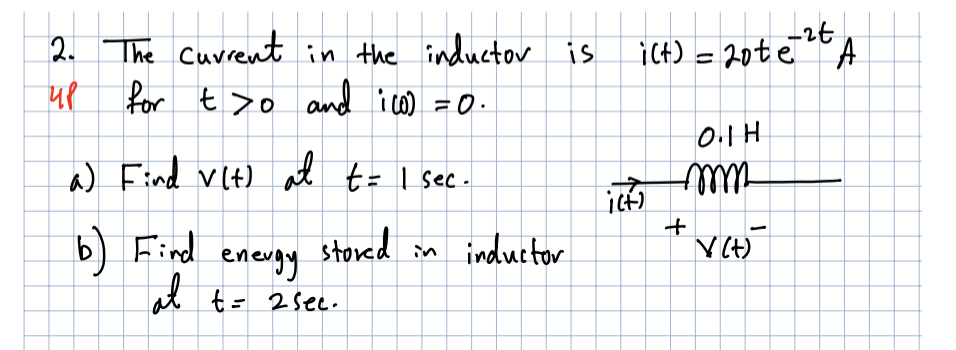 2. The current in the inductor is i(t) = 20te^-2t A
4P for t >0 and i(0) = 0.
0.1 H
a) Find v(t) at t= 1 sec.
i(t)
+ V(t) -
b) Find energy stored in inductor
at t= 2 sec.